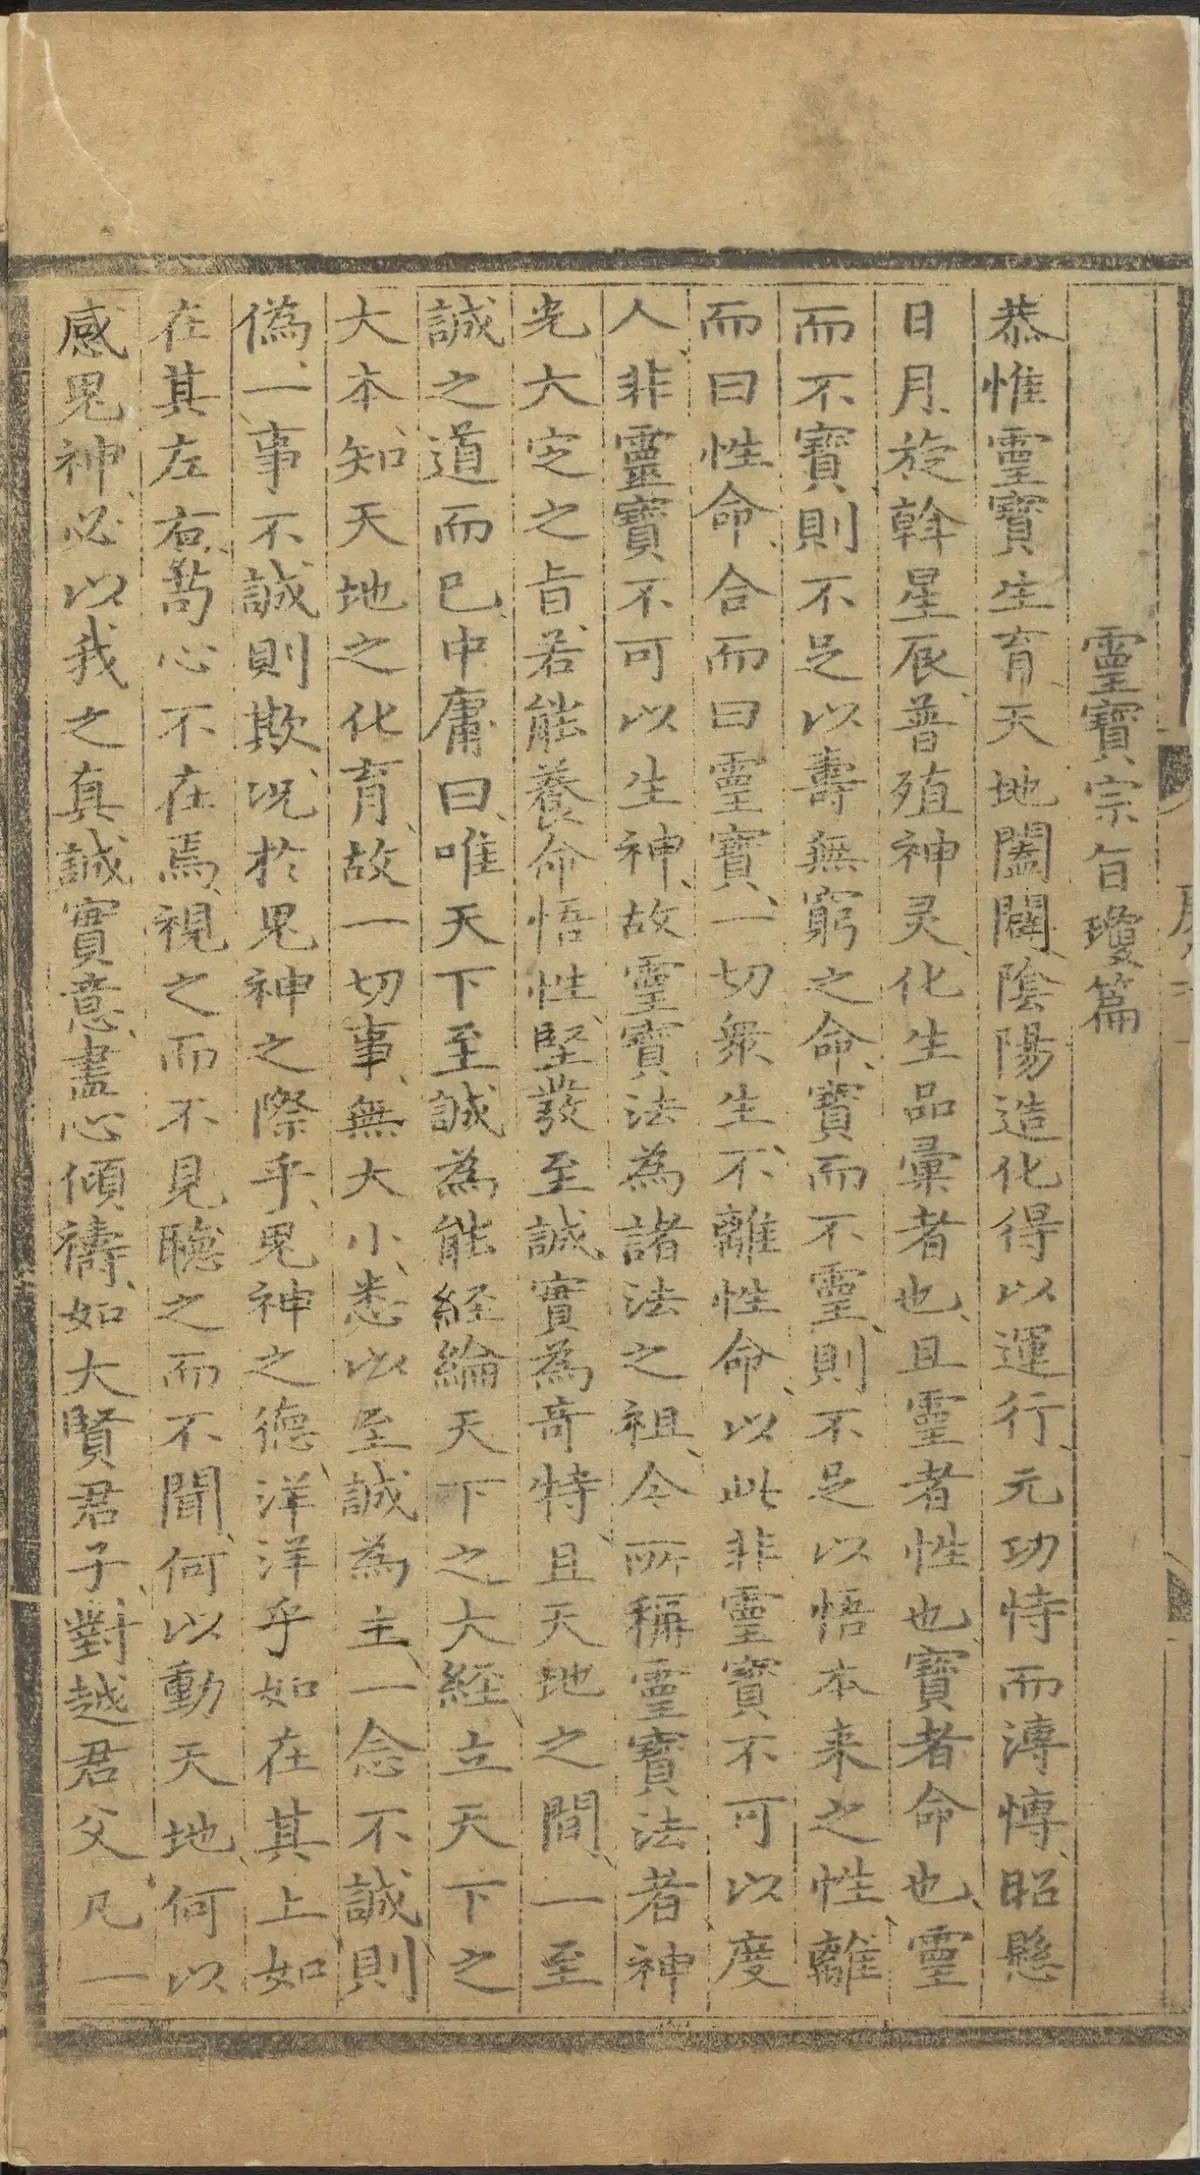 靈寶宗旨瓊篇
恭惟靈寶生育天地闔闢陰陽造化得以運行元功恃而漙慱昭懸
日月旋斡星辰普殖神灵化生品彙者也且靈者性也寶者命也靈
而不寶則不足以壽無窮之命寶而不靈則不足以悟本来之性離
而曰性命合而曰靈寶一切衆生不離性命以此非靈寶不可以度
人非靈寶不可以生神故靈寶法為諸法之祖今所稱靈寶法者神
光大定之旨若能養命悟性堅發至誠實為竒特且天地之間一至
誠之道而已中庸曰唯天下至誠為能経綸天下之大経立天下之
大本知天地之化育故一切事無大小悉以至誠為主一念不誠則
偽一事不誠則欺况於鬼神之際乎鬼神之德洋洋乎如在其上如
在其左右苟心不在焉視之而不見聽之而不聞何以動天地何以
感鬼神必以我之真誠實意盡心傾禱如大賢君子對越君父凡一